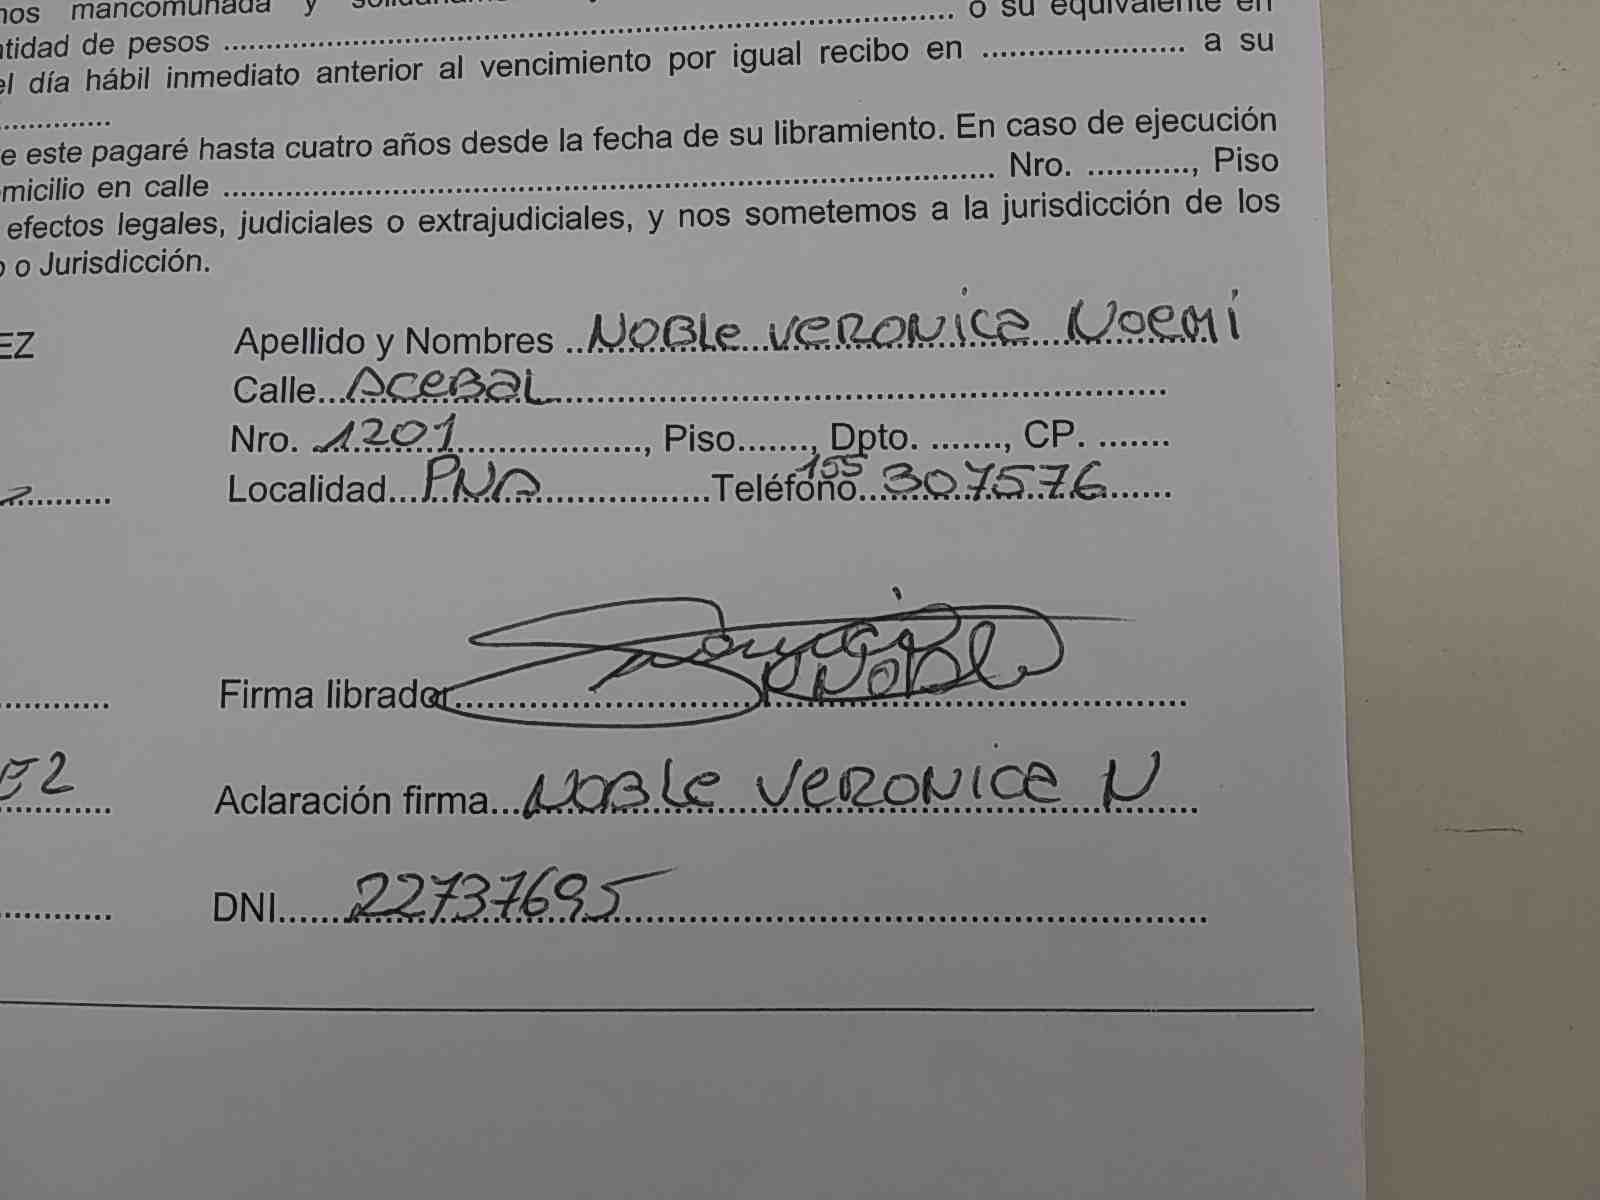 nos mancomunada y
ntidad de pesos ........................ o su equivalente en
el día hábil inmediato anterior al vencimiento por igual recibo en ........................ a su
.............
e este pagaré hasta cuatro años desde la fecha de su libramiento. En caso de ejecución
micilio en calle ........................ Nro. ..........., Piso
efectos legales, judiciales o extrajudiciales, y nos sometemos a la jurisdicción de los
o o Jurisdicción.
EZ
Apellido y Nombres .. NOBLE VERONICA NOEMI
Calle... ACEBAL
Nro. 1201 ........, Piso......., Dpto. ......., CP. .......
Localidad.... PNA ........Teléfono 155 307576
Firma librador Noble
EZ
Aclaración firma... NOBLE VERONICA N
DNI...... 22737695